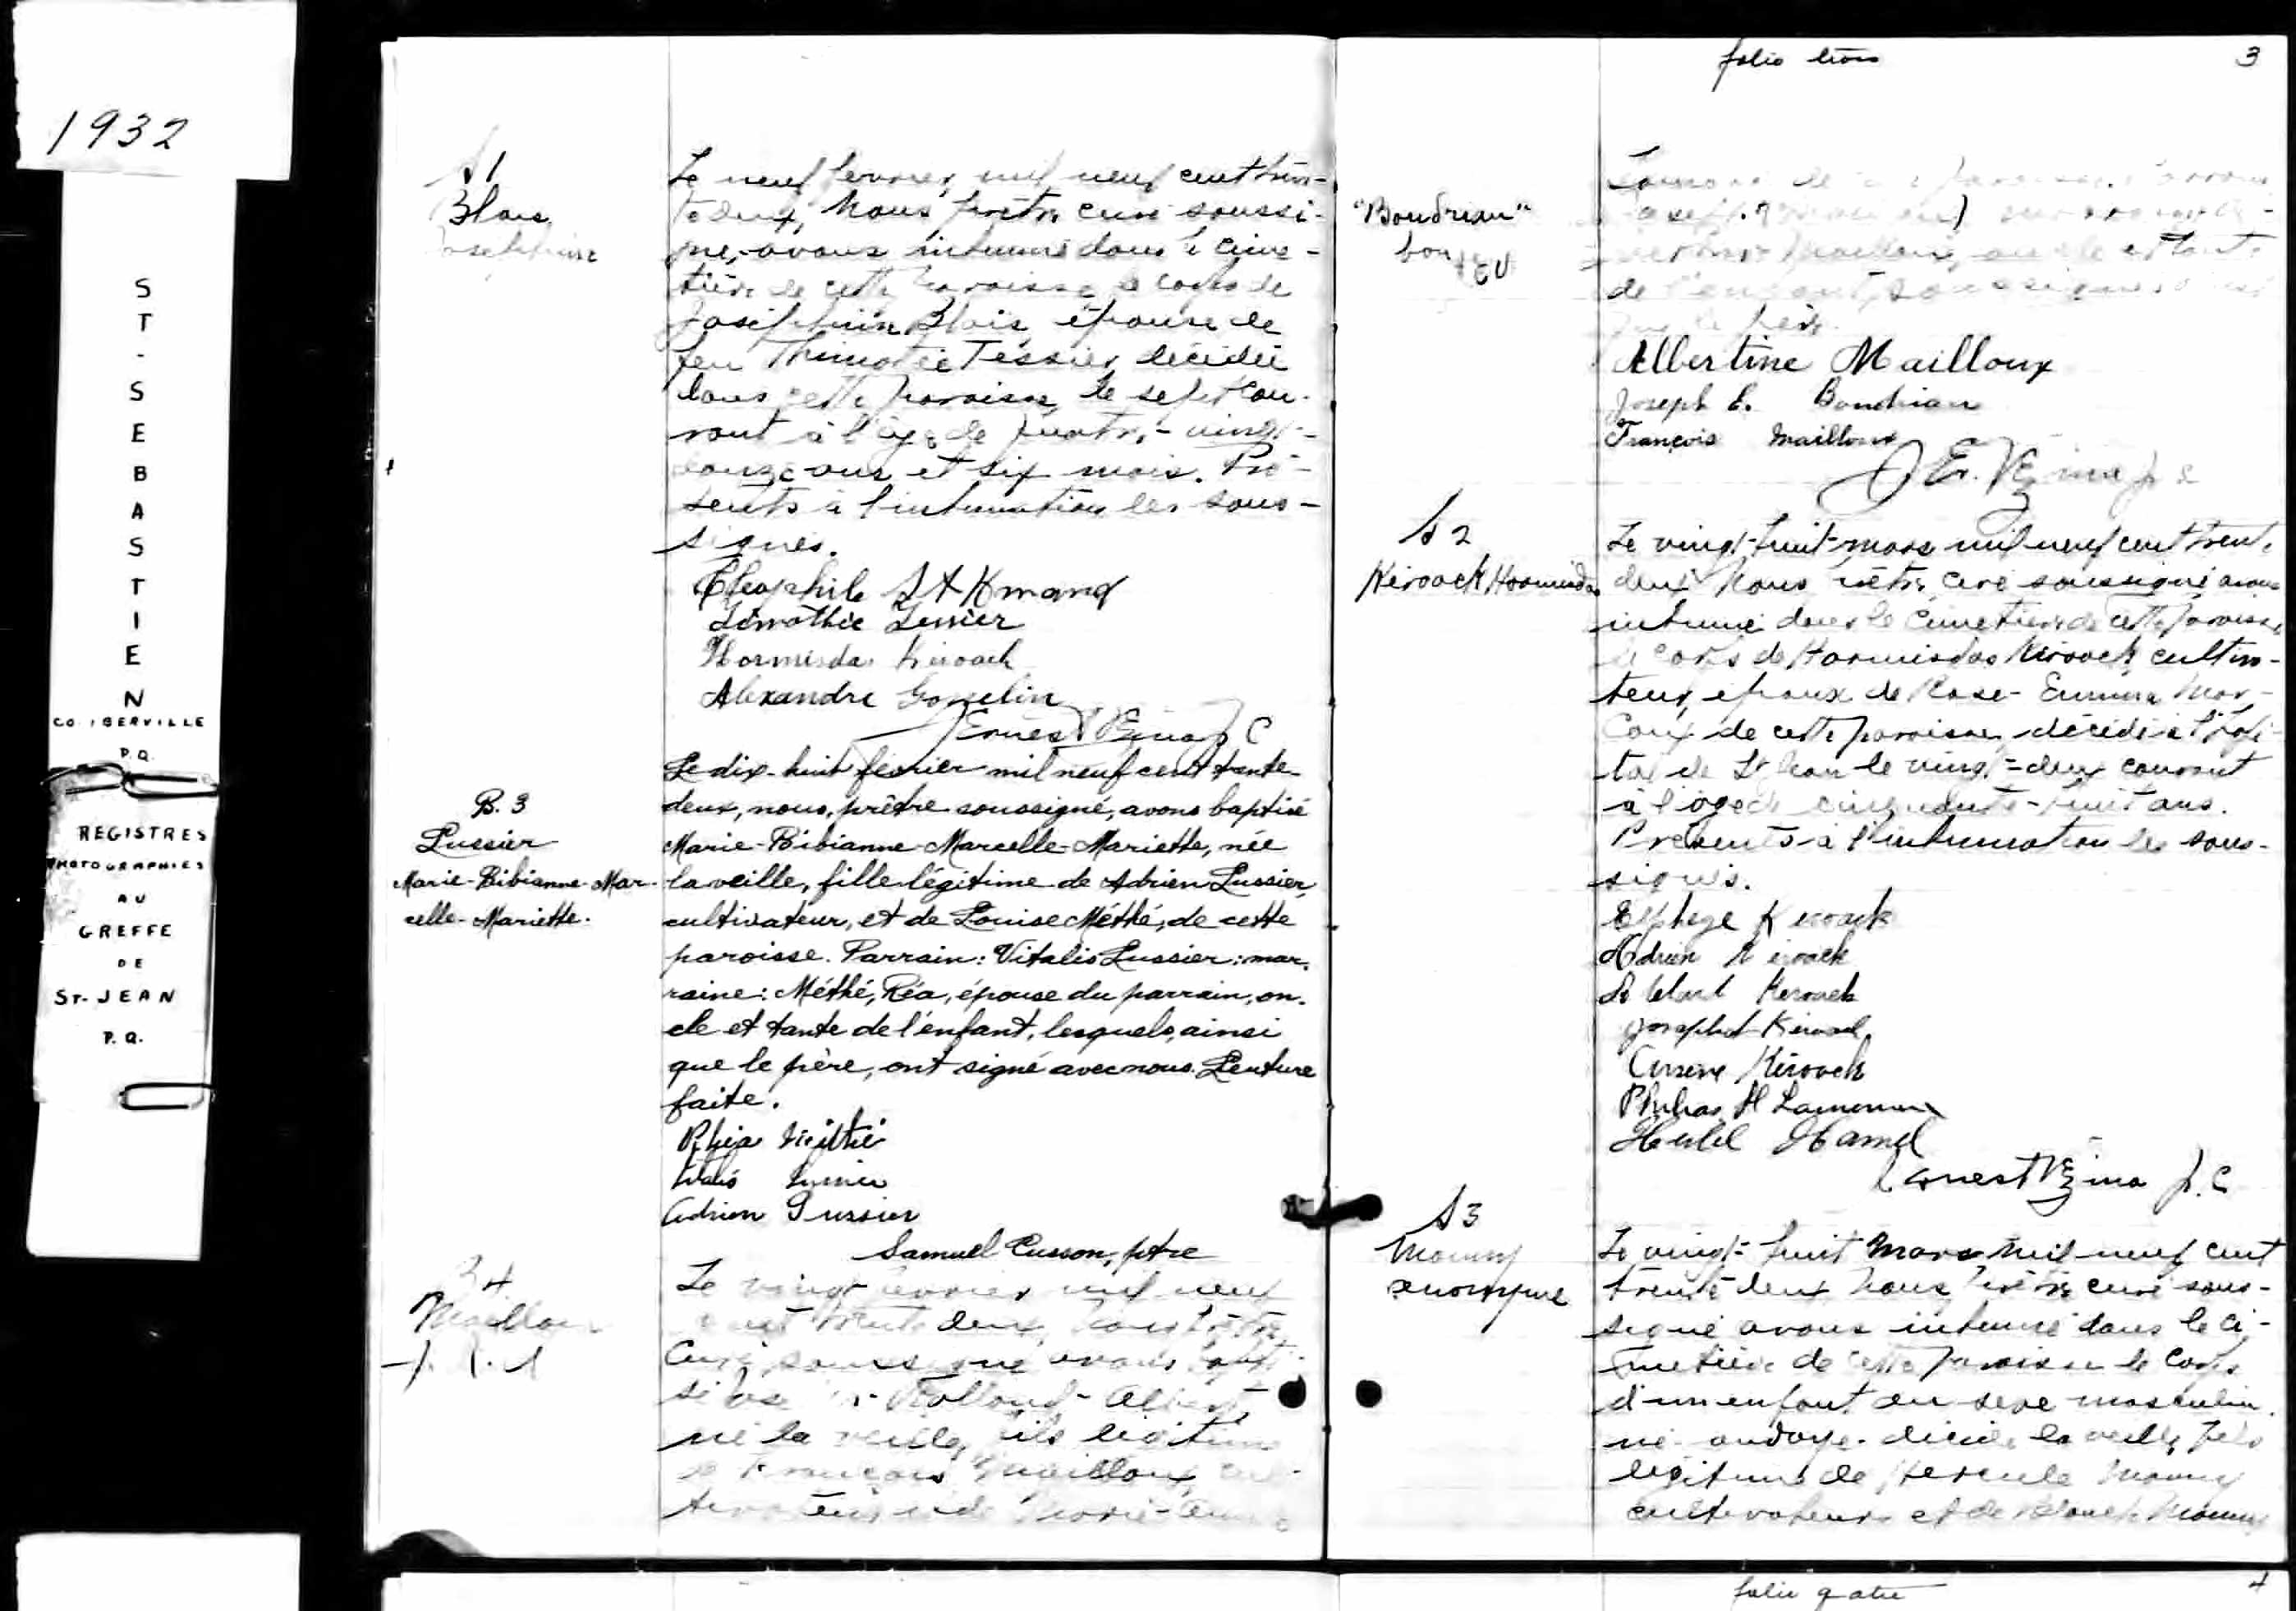 1932
ST-SEBASTIEN
CO. IBERVILLE
P.Q.
REGISTRES
PHOTOGRAPHIES
AU
GREFFE
DE
ST-JEAN
P.Q.
S1
Blais
Josephine
Le neuf fevrier mil neuf cent tren-
te deux, nous prêtre curé soussi-
gné, avons inhumé dans le cime-
tière de cette paroisse le corps de
Josephine Blais, épouse de
feu Thimotée Tessier, décédée
dans cette paroisse, le sept cou-
rant à l'âge de quatre-vingt-
douze ans et six mois. Pré-
sents à l'inhumation les sous-
signés.
Théophile St Amand
Timothée Tessier
Hormisdas Kérouack
Alexandre Gosselin
Ernest Vézina p. C
B. 3
Lussier
Marie-Bibianne-Mar-
celle-Mariette.
Le dix-huit février mil neuf cent trente-
deux, nous, prêtre soussigné, avons baptisé
Marie-Bibianne-Marcelle-Mariette, née
la veille, fille légitime de Adrien Lussier,
cultivateur, et de Louise Méthé, de cette
paroisse. Parrain: Vitalis Lussier: mar-
raine: Méthé, Réa, épouse du parrain, on-
cle et tante de l'enfant, lesquels, ainsi
que le père, ont signé avec nous. Lecture
faite.
Réa Méthé
Vitalis Lussier
Adrien Lussier
Samuel Cusson, ptre
B4
Mailloux
Le vingt fevrier mil neuf
cent trente deux, nous prêtre
curé soussigné avons bapti-
sé Rolland-Albert
né la veille, fils légitime
de François Mailloux, cul-
tivateur et de Marie-Anne
folio trois 3
"Boudreau"
bon
Parrain
Joseph
Albertine Mailloux, oncle et tante
de l'enfant, soussignés ainsi
que le père.
Albertine Mailloux
Joseph E. Boudreau
François Mailloux
Er. Vézina p c
S2
Kérouack Hormisdas
Le vingt-huit mars mil neuf cent trente
deux nous prêtre curé soussigné avons
inhumé dans le cimetière de cette paroisse
le corps de Hormisdas Kérouack, cultiva-
teur, époux de Rose-Emma Mar-
coux de cette paroisse, décédé à l'hôpi-
tal de St Jean le vingt-deux courant
à l'âge de cinquante-huit ans.
Présents à l'inhumation les sous-
signés.
Elphège Kérouack
Adrien Kérouack
Kérouack
Josaphat Kérouack
Arsène Kérouack
Philias H Lamoureux
Hamel
Ernest Vézina p. C
S3
anonyme
Le vingt-huit Mars mil neuf cent
trente deux nous prêtre curé sous-
signé avons inhumé dans le ci-
metière de cette paroisse le corps
d'un enfant du sexe masculin
né-ondoyé-décédé la veille, fils
légitime de Hercule
cultivateur et de
folio quatre 4